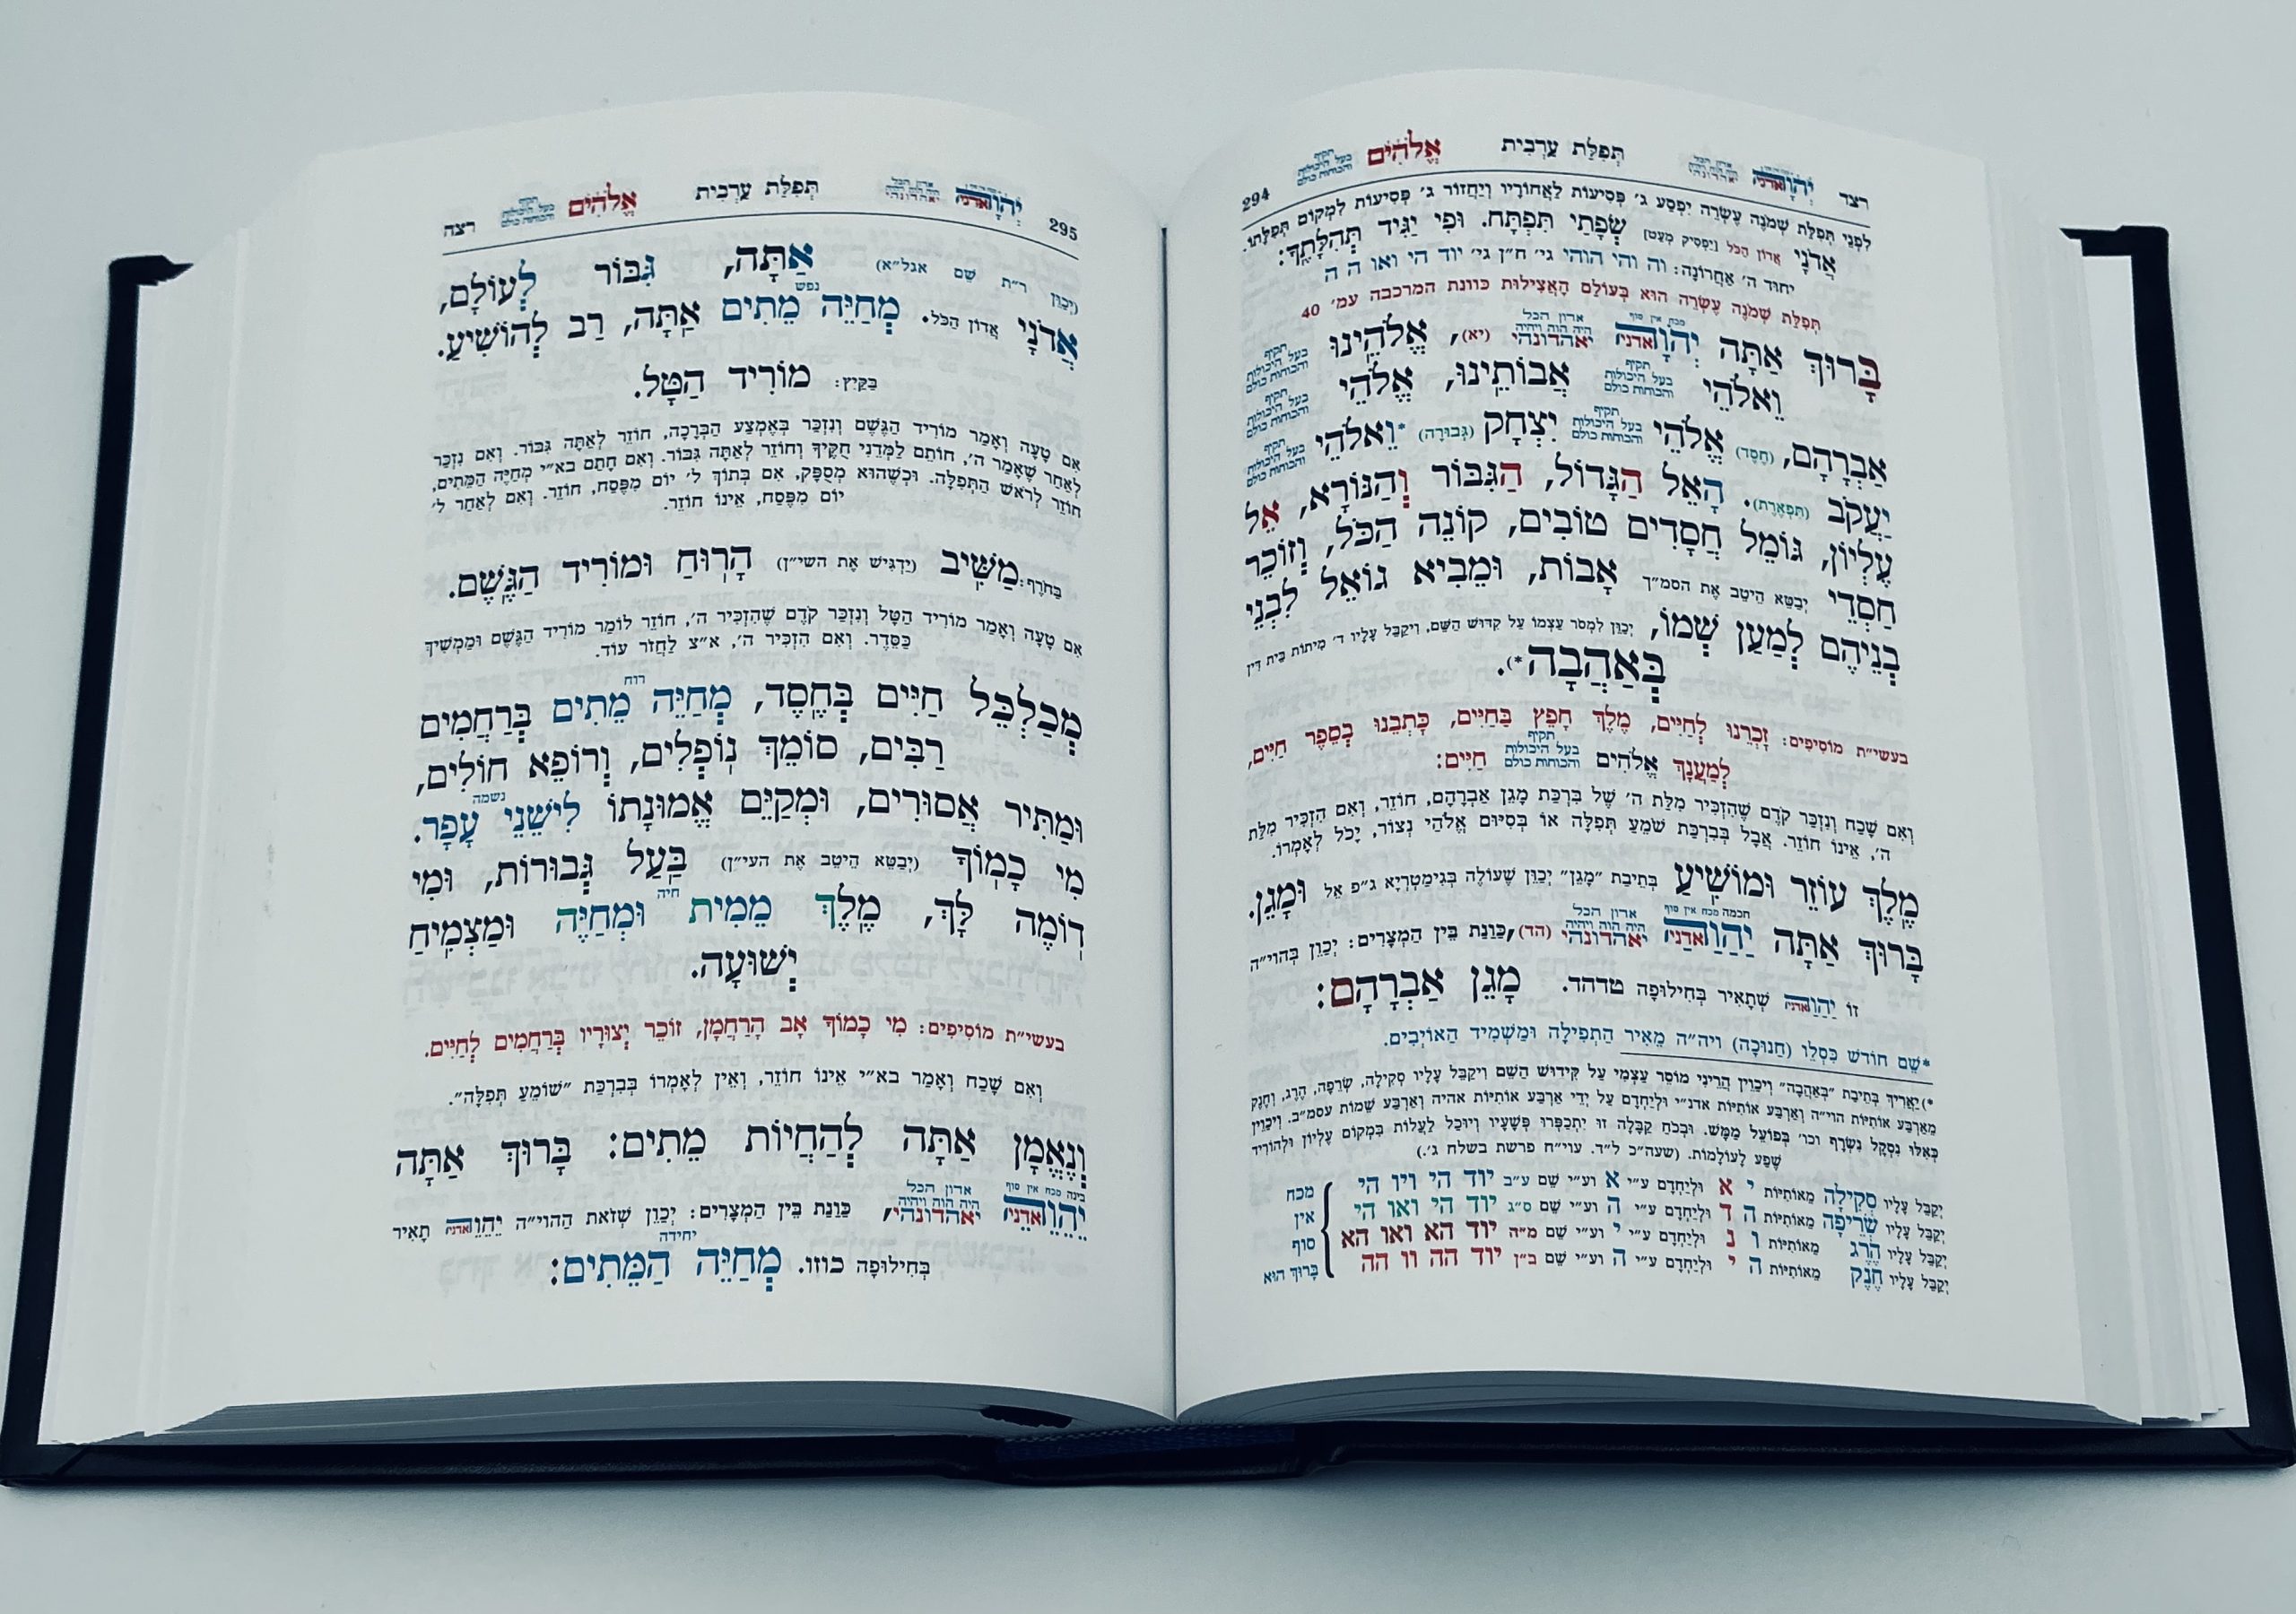 רצד יְהֹוָה תְּפִלַּת עַרְבִית אֱלֹהִים 294
לִפְנֵי תְּפִלַּת שְׁמֹנֶה עֶשְׂרֵה יִפְסַע ג׳ פְּסִיעוֹת לַאֲחוֹרָיו וְיַחֲזוֹר ג׳ פְּסִיעוֹת לִמְקוֹם תְּפִלָּתוֹ.
אֲדֹנָי אֲדוֹן הַכֹּל [יַפְסִיק מְעַט] שְׂפָתַי תִּפְתָּח. וּפִי יַגִּיד תְּהִלָּתֶךָ:
יחוד ה׳ אַחֲרוֹנָה: וה והי הוהי גי׳ ח״ן גי׳ יוד הי ואו ה ה
תְּפִלַּת שְׁמֹנֶה עֶשְׂרֵה הוּא בְּעוֹלַם הָאֲצִילוּת כּוונת המרכבה עמ׳ 40
בָּרוּךְ אַתָּה יְהֹוָה יאהדונהי (יא), אֱלֹהֵינוּ
וֵאלֹהֵי אֲבוֹתֵינוּ, אֱלֹהֵי
אַבְרָהָם, (חֶסֶד) אֱלֹהֵי יִצְחָק (גְּבוּרָה) *וֵאלֹהֵי
יַעֲקֹב (תִּפְאֶרֶת). הָאֵל הַגָּדוֹל, הַגִּבּוֹר וְהַנּוֹרָא, אֵל
עֶלְיוֹן, גּוֹמֵל חֲסָדִים טוֹבִים, קוֹנֵה הַכֹּל, וְזוֹכֵר
חַסְדֵי יְבַטֵּא הֵיטֵב אֶת הסמ״ך אָבוֹת, וּמֵבִיא גוֹאֵל לִבְנֵי
בְנֵיהֶם לְמַעַן שְׁמוֹ, יְכַוֵּן לִמְסֹר עַצְמוֹ עַל קִדּוּשׁ הַשֵּׁם, וִיקַבֵּל עָלָיו ד׳ מִיתוֹת בֵּית דִּין
בְּאַהֲבָה*).
בעשי״ת מוֹסִיפִים: זָכְרֵנוּ לְחַיִּים, מֶלֶךְ חָפֵץ בַּחַיִּים, כָּתְבֵנוּ בְּסֵפֶר חַיִּים,
לְמַעֲנָךְ אֱלֹהִים חַיִּים:
וְאִם שָׁכַח וְנִזְכַּר קֹדֶם שֶׁהִזְכִּיר מִלַּת ה׳ שֶׁל בִּרְכַּת מָגֵן אַבְרָהָם, חוֹזֵר, וְאִם הִזְכִּיר מִלַּת
ה׳, אֵינוֹ חוֹזֵר. אֲבָל בְּבִרְכַּת שֹׁמֵעַ תְּפִלָּה אוֹ בְּסִיּוּם אֱלֹהַי נְצוֹר, יָכֹל לְאָמְרוֹ.
מֶלֶךְ עוֹזֵר וּמוֹשִׁיעַ בְּתֵיבַת ״מָגֵן״ יְכַוֵּן שֶׁעוֹלֶה בְּגִימַטְרְיָא ג״פ אֵל וּמָגֵן.
בָּרוּךְ אַתָּה יַהַוַהַ יאהדונהי (הד), כַּוָּנַת בֵּין הַמְּצָרִים: יְכַוֵּן בְּהוי״ה
זוֹ יַהַוַהַ שֶׁתָּאִיר בְּחִילוּפָהּ טדהד. מָגֵן אַבְרָהָם:
*שֵׁם חוֹדֶשׁ כִּסְלֵו (חֲנוּכָּה) ויה״ה מֵאִיר הַתְּפִילָּה וּמַשְׁמִיד הָאוֹיְבִים.
*) יַאֲרִיךְ בְּתֵיבַת ״בְּאַהֲבָה״ וִיכַוֵּין הֲרֵינִי מוֹסֵר עַצְמִי עַל קִידּוּשׁ הַשֵּׁם וִיקַבֵּל עָלָיו סְקִילָה, שְׂרֵפָה, הֶרֶג, וְחֶנֶק
מֵאַרְבַּע אוֹתִיּוֹת הוי״ה וְאַרְבַּע אוֹתִיּוֹת אדנ״י וּלְיַחֲדָם עַל יְדֵי אַרְבַּע אוֹתִיּוֹת אהיה וְאַרְבַּע שֵׁמוֹת עסמ״ב. וִיכַוֵּין
כְּאִלּוּ נִסְקַל נִשְׂרַף וכו׳ בְּפוֹעַל מַמָּשׁ. וּבְכֹחַ קַבָּלָה זוֹ יִתְכַּפְּרוּ פְּשָׁעָיו וְיוּכַל לַעֲלוֹת בִּמְקוֹם עֶלְיוֹן וּלְהוֹרִיד
שֶׁפַע לָעוֹלָמוֹת. (שעה״כ ל״ד. עוי״ח פרשת בשלח ג׳.)
יְקַבֵּל עָלָיו סְקִילָה מֵאוֹתִיּוֹת י א וּלְיַחֲדָם ע״י א וע״י שֵׁם ע״ב יוד הי ויו הי מכח
יְקַבֵּל עָלָיו שְׂרֵיפָה מֵאוֹתִיּוֹת ה ד וּלְיַחֲדָם ע״י ה וע״י שֵׁם ס״ג יוד הי ואו הי אין
יְקַבֵּל עָלָיו הֶרֶג מֵאוֹתִיּוֹת ו נ וּלְיַחֲדָם ע״י י וע״י שֵׁם מ״ה יוד הא ואו הא סוף
יְקַבֵּל עָלָיו חֶנֶק מֵאוֹתִיּוֹת ה י וּלְיַחֲדָם ע״י ה וע״י שֵׁם ב״ן יוד הה וו הה בָּרוּךְ הוּא
295 יְהֹוָה תְּפִלַּת עַרְבִית אֱלֹהִים רצה
(יְכַוֵּן ר״ת שֵׁם אגל״א) אַתָּה, גִּבּוֹר לְעוֹלָם,
אֲדֹנָי אֲדוֹן הַכֹּל. מְחַיֵּה נפש מֵתִים אַתָּה, רַב לְהוֹשִׁיעַ.
בַּקַּיִץ: מוֹרִיד הַטָּל.
אִם טָעָה וְאָמַר מוֹרִיד הַגֶּשֶׁם וְנִזְכַּר בְּאֶמְצַע הַבְּרָכָה, חוֹזֵר לְאַתָּה גִּבּוֹר. וְאִם נִזְכַּר
לְאַחַר שֶׁאָמַר ה׳, חוֹתֵם לַמְּדֵנִי חֻקֶּיךָ וְחוֹזֵר לְאַתָּה גִּבּוֹר. וְאִם חָתַם בא״י מְחַיֵּה הַמֵּתִים,
חוֹזֵר לְרֹאשׁ הַתְּפִלָּה. וּכְשֶׁהוּא מְסֻפָּק, אִם בְּתוֹךְ ל׳ יוֹם מִפֶּסַח, חוֹזֵר. וְאִם לְאַחַר ל׳
יוֹם מִפֶּסַח, אֵינוֹ חוֹזֵר.
בַּחֹרֶף: מַשִּׁיב (יַדְגִּישׁ אֶת השי״ן) הָרוּחַ וּמוֹרִיד הַגֶּשֶׁם.
אִם טָעָה וְאָמַר מוֹרִיד הַטָּל וְנִזְכַּר קֹדֶם שֶׁהִזְכִּיר ה׳, חוֹזֵר לוֹמַר מוֹרִיד הַגֶּשֶׁם וּמַמְשִׁיךְ
כַּסֵּדֶר. וְאִם הִזְכִּיר ה׳, א״צ לַחֲזֹר עוֹד.
מְכַלְכֵּל חַיִּים בְּחֶסֶד, מְחַיֵּה רוח מֵתִים בְּרַחֲמִים
רַבִּים, סוֹמֵךְ נוֹפְלִים, וְרוֹפֵא חוֹלִים,
וּמַתִּיר אֲסוּרִים, וּמְקַיֵּם אֱמוּנָתוֹ לִישֵׁנֵי נשמה עָפָר.
מִי כָמוֹךָ (יְבַטֵּא הֵיטֵב אֶת העי״ן) בַּעַל גְּבוּרוֹת, וּמִי
דוֹמֶה לָּךְ, מֶלֶךְ מֵמִית חיה וּמְחַיֶּה וּמַצְמִיחַ
יְשׁוּעָה.
בעשי״ת מוֹסִיפִים: מִי כָמוֹךָ אָב הָרַחֲמָן, זוֹכֵר יְצוּרָיו בְּרַחֲמִים לְחַיִּים.
וְאִם שָׁכַח וְאָמַר בא״י אֵינוֹ חוֹזֵר, וְאֵין לְאָמְרוֹ בְּבִרְכַּת ״שׁוֹמֵעַ תְּפִלָּה״.
וְנֶאֱמָן אַתָּה לְהַחֲיוֹת מֵתִים: בָּרוּךְ אַתָּה
יֵהֵוֵהֵ יאהדונהי, כַּוָּנַת בֵּין הַמְּצָרִים: יְכַוֵּן שֶׁזֹּאת הַהוי״ה יֵהֵוֵהֵ תָּאִיר
בְּחִילוּפָהּ כוזו. מְחַיֵּה יחידה הַמֵּתִים: